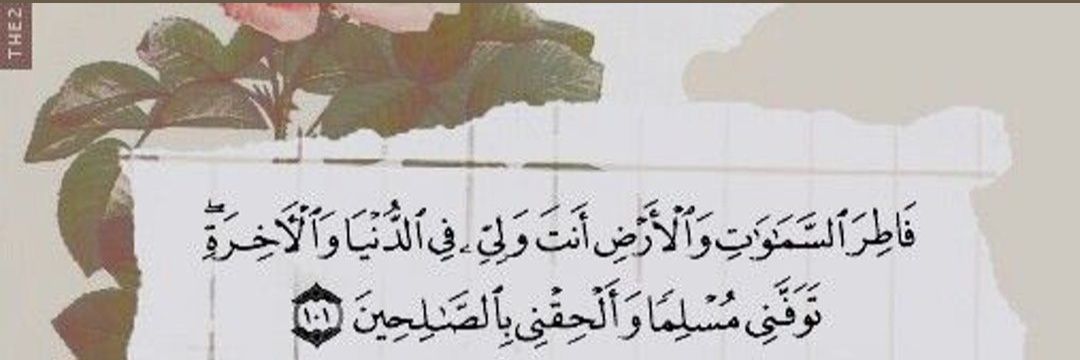 THE2
فَاطِرَ ٱلسَّمَـٰوَٰتِ وَٱلْأَرْضِ أَنتَ وَلِىِّۦ فِى ٱلدُّنْيَا وَٱلْـَٔاخِرَةِ ۖ
تَوَفَّنِى مُسْلِمًا وَأَلْحِقْنِى بِٱلصَّـٰلِحِينَ ١٠١